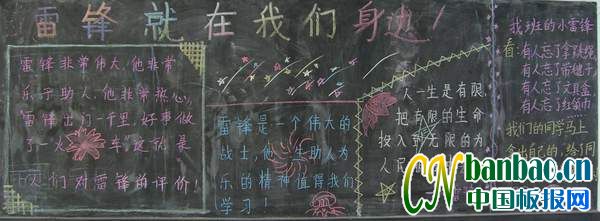 雷锋就在我们身边！
雷锋非常伟大，他非常
乐于助人，他非常热心，
雷锋出门一千里，好事做
了一火车，这就是
人们对雷锋的评价！
雷锋是一个伟大的
战士，他一生助人为
乐的精神值得我们
学习！
人一生是有限，
把有限的生命
投入到无限的为
人民
找班的小雷锋
看：有人忘了拿跳绳
有人忘了带毽子
有人忘了文具盒
有人忘了红领巾
我们的同学马上
拿出自己的，给了同
CN banbao.cn
中国板报网